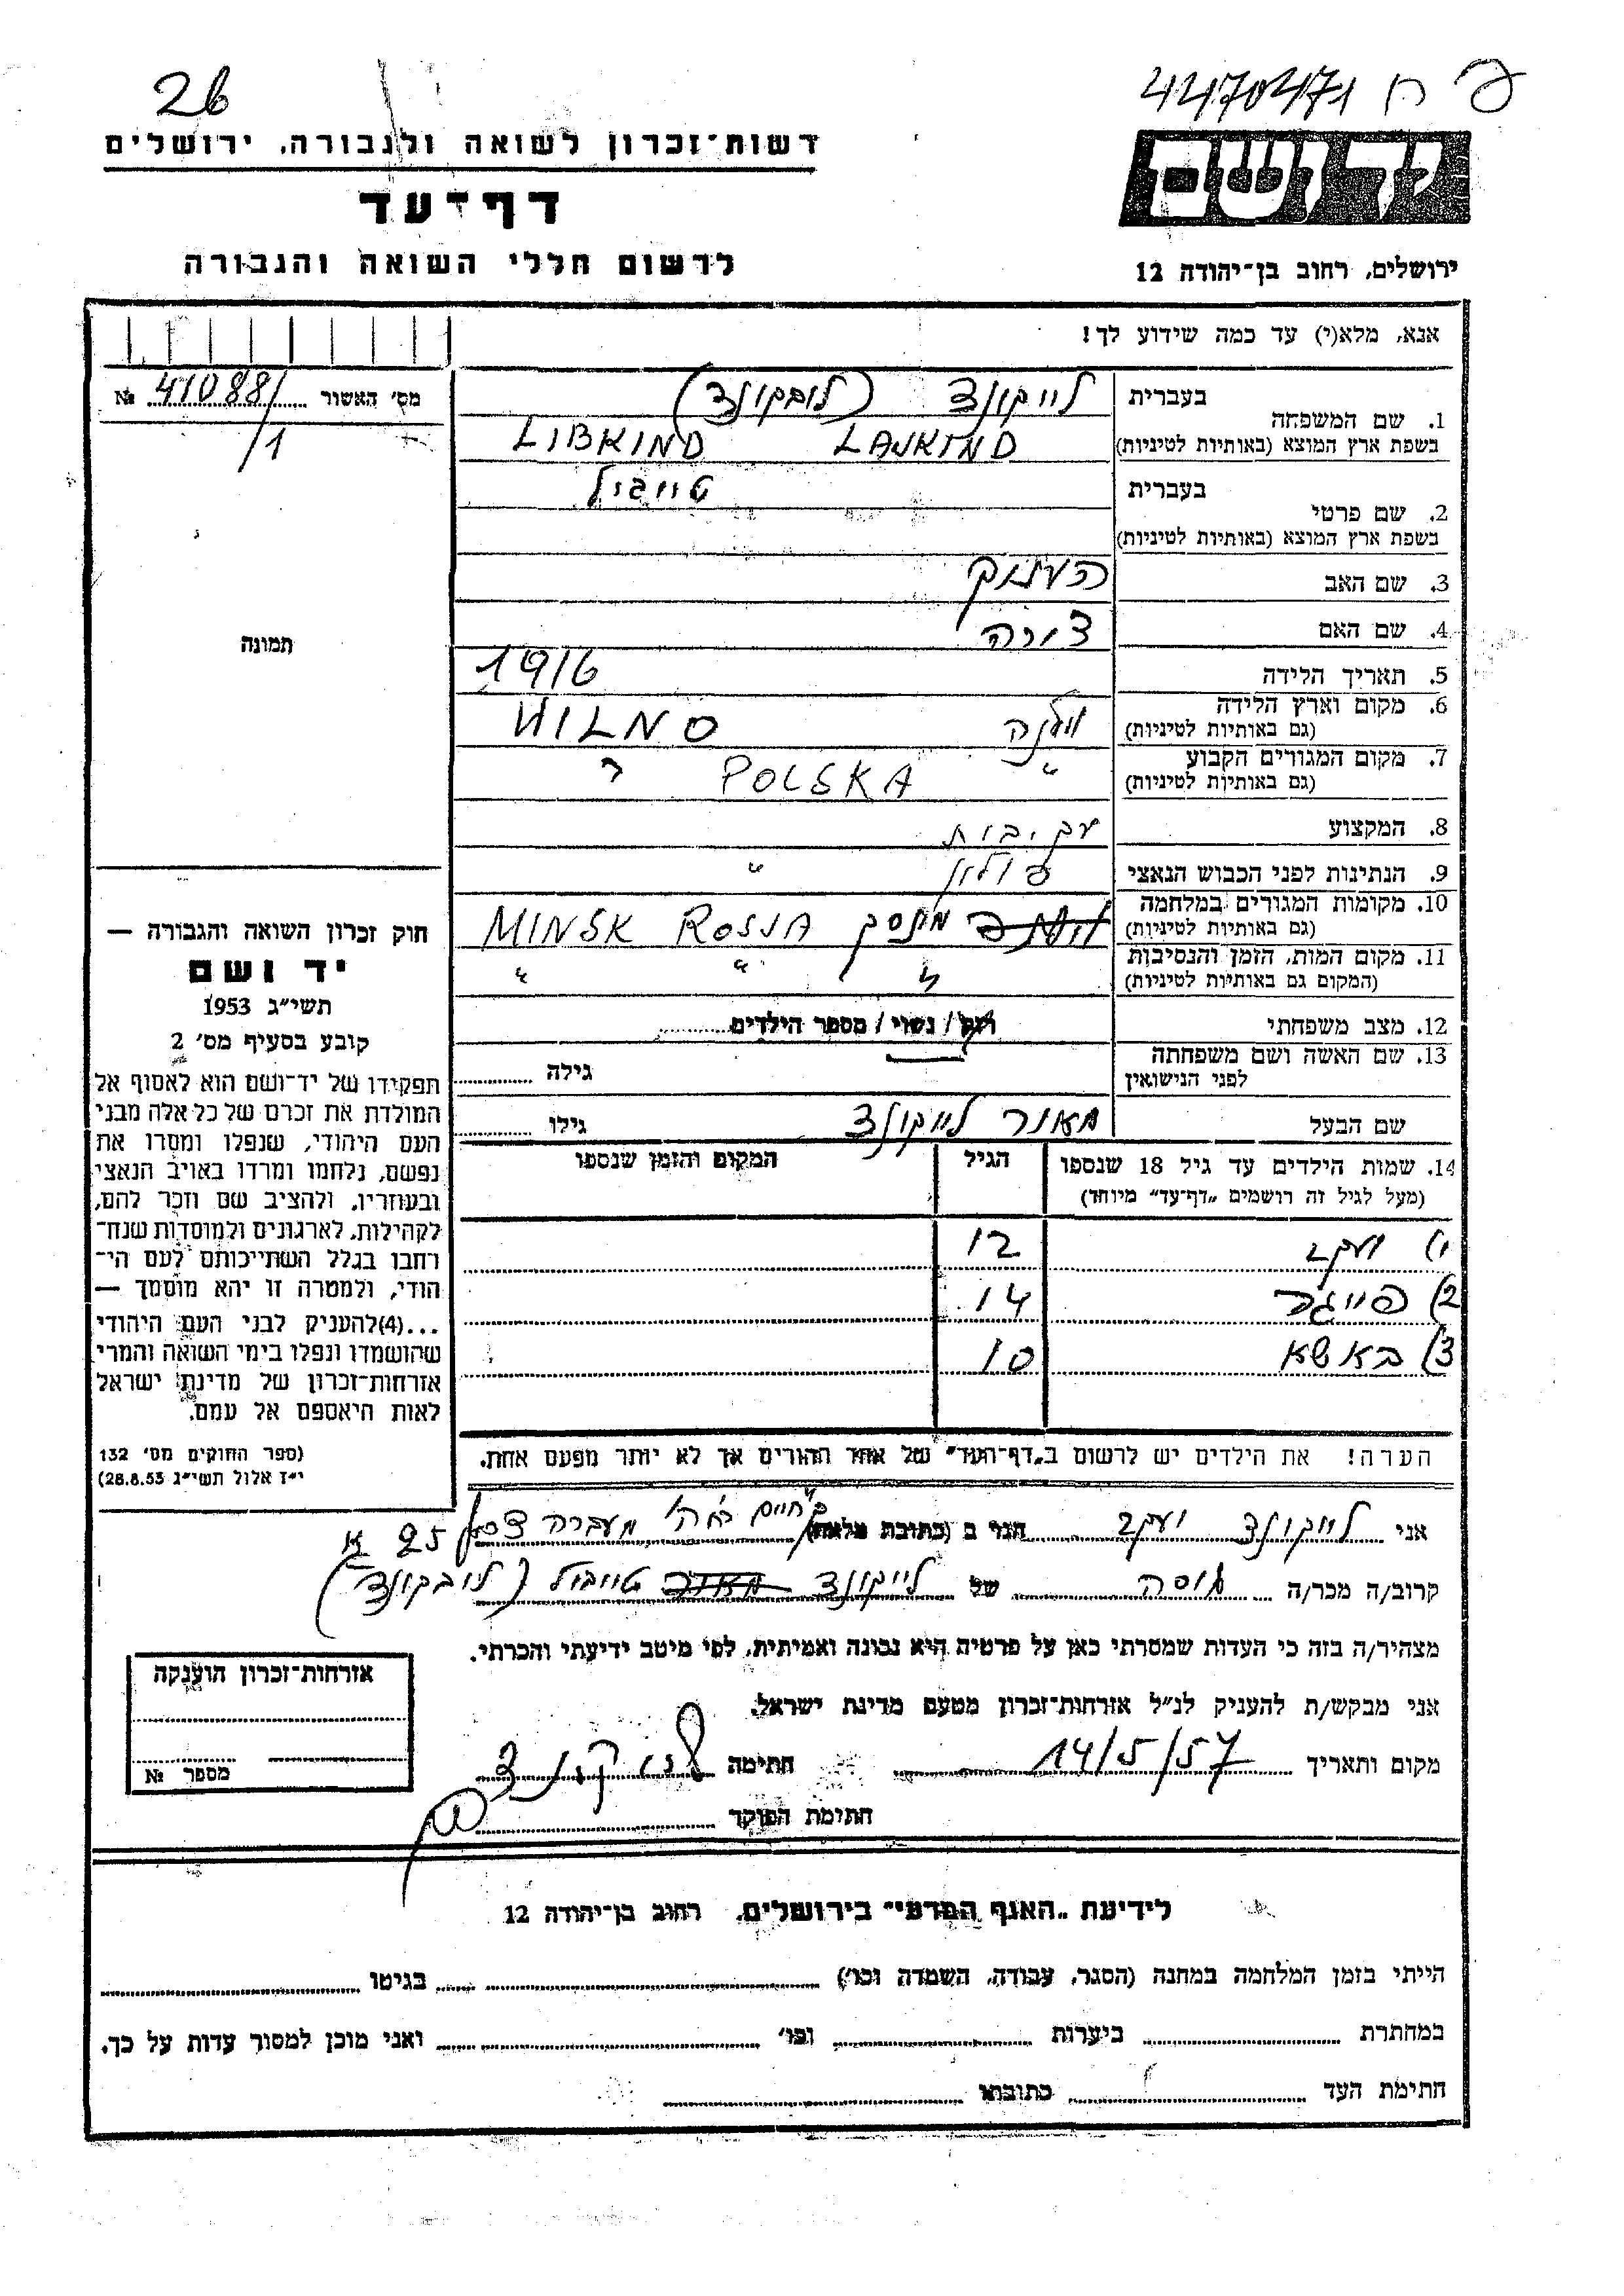 26
4470471 ח פ
רשות־זכרון לשואה ולגבורה, ירושלים
יד ושם
דף־עד
לרשום חללי השואה והגבורה
ירושלים, רחוב בן־יהודה 12
אנא, מלא(י) עד כמה שידוע לך!
מס׳ האשור № 41088/
/1
תמונה
1. שם המשפחה
בעברית לייקונד (לובקונד)
בשפת ארץ המוצא (באותיות לטיניות) LAJKIND LIBKIND
2. שם פרטי
בעברית טייביל
בשפת ארץ המוצא (באותיות לטיניות)
3. שם האב
4. שם האם
5. תאריך הלידה 1916
6. מקום וארץ הלידה
(גם באותיות לטיניות) וילנה WILNO
7. מקום המגורים הקבוע
(גם באותיות לטיניות) " POLSKA ?
8. המקצוע
9. הנתינות לפני הכבוש הנאצי פולין "
10. מקומות המגורים במלחמה
(גם באותיות לטיניות) מינסק MINSK ROSJA
11. מקום המות, הזמן והנסיבות
(המקום גם באותיות לטיניות) " " "
12. מצב משפחתי רווק / נשוי / מספר הילדים
13. שם האשה ושם משפחתה
לפני הנישואין גילה
שם הבעל מאיר לייקונד גילו
14. שמות הילדים עד גיל 18 שנספו הגיל המקום והזמן שנספו
(מעל לגיל זה רושמים „דף־עד" מיוחד)
1) יעקב 12
2) פייגה 14
3) באשא 10
הערה! את הילדים יש לרשום ב„דף־העד" של אחד ההורים אך לא יותר מפעם אחת.
חוק זכרון השואה והגבורה —
יד ושם
תשי״ג 1953
קובע בסעיף מס׳ 2
תפקידו של יד־ושם הוא לאסוף אל
המולדת את זכרם של כל אלה מבני
העם היהודי, שנפלו ומסרו את
נפשם, נלחמו ומרדו באויב הנאצי
ובעוזריו, ולהציב שם וזכר להם,
לקהילות, לארגונים ולמוסדות שנח־
רבו בגלל השתייכותם לעם הי־
הודי, ולמטרה זו יהא מוסמך —
...(4) להעניק לבני העם היהודי
שהושמדו ונפלו בימי השואה והמרי
אזרחות־זכרון של מדינת ישראל
לאות היאספם אל עמם.
(ספר החוקים מס׳ 132
י״ז אלול תשי״ג 28.8.53)
אני לייקונד יעקב הגר ב (כתובת מלאה) מעברה 95
קרוב/ה מכר/ה גיסה של לייקונד טייביל (ליבקונד)
מצהיר/ה בזה כי העדות שמסרתי כאן על פרטיה היא נכונה ואמיתית, לפי מיטב ידיעתי והכרתי.
אני מבקש/ת להעניק לנ״ל אזרחות־זכרון מטעם מדינת ישראל.
מקום ותאריך 14/5/57 חתימה לייקונד
חתימת הפוקד
אזרחות־זכרון הוענקה
מספר №
לידיעת „האגף המדעי" בירושלים, רחוב בן־יהודה 12
הייתי בזמן המלחמה במחנה (הסגר, עבודה, השמדה וכו׳) בגיטו
במחתרת ביערות וכו׳ ואני מוכן למסור עדות על כך.
חתימת העד כתובתו